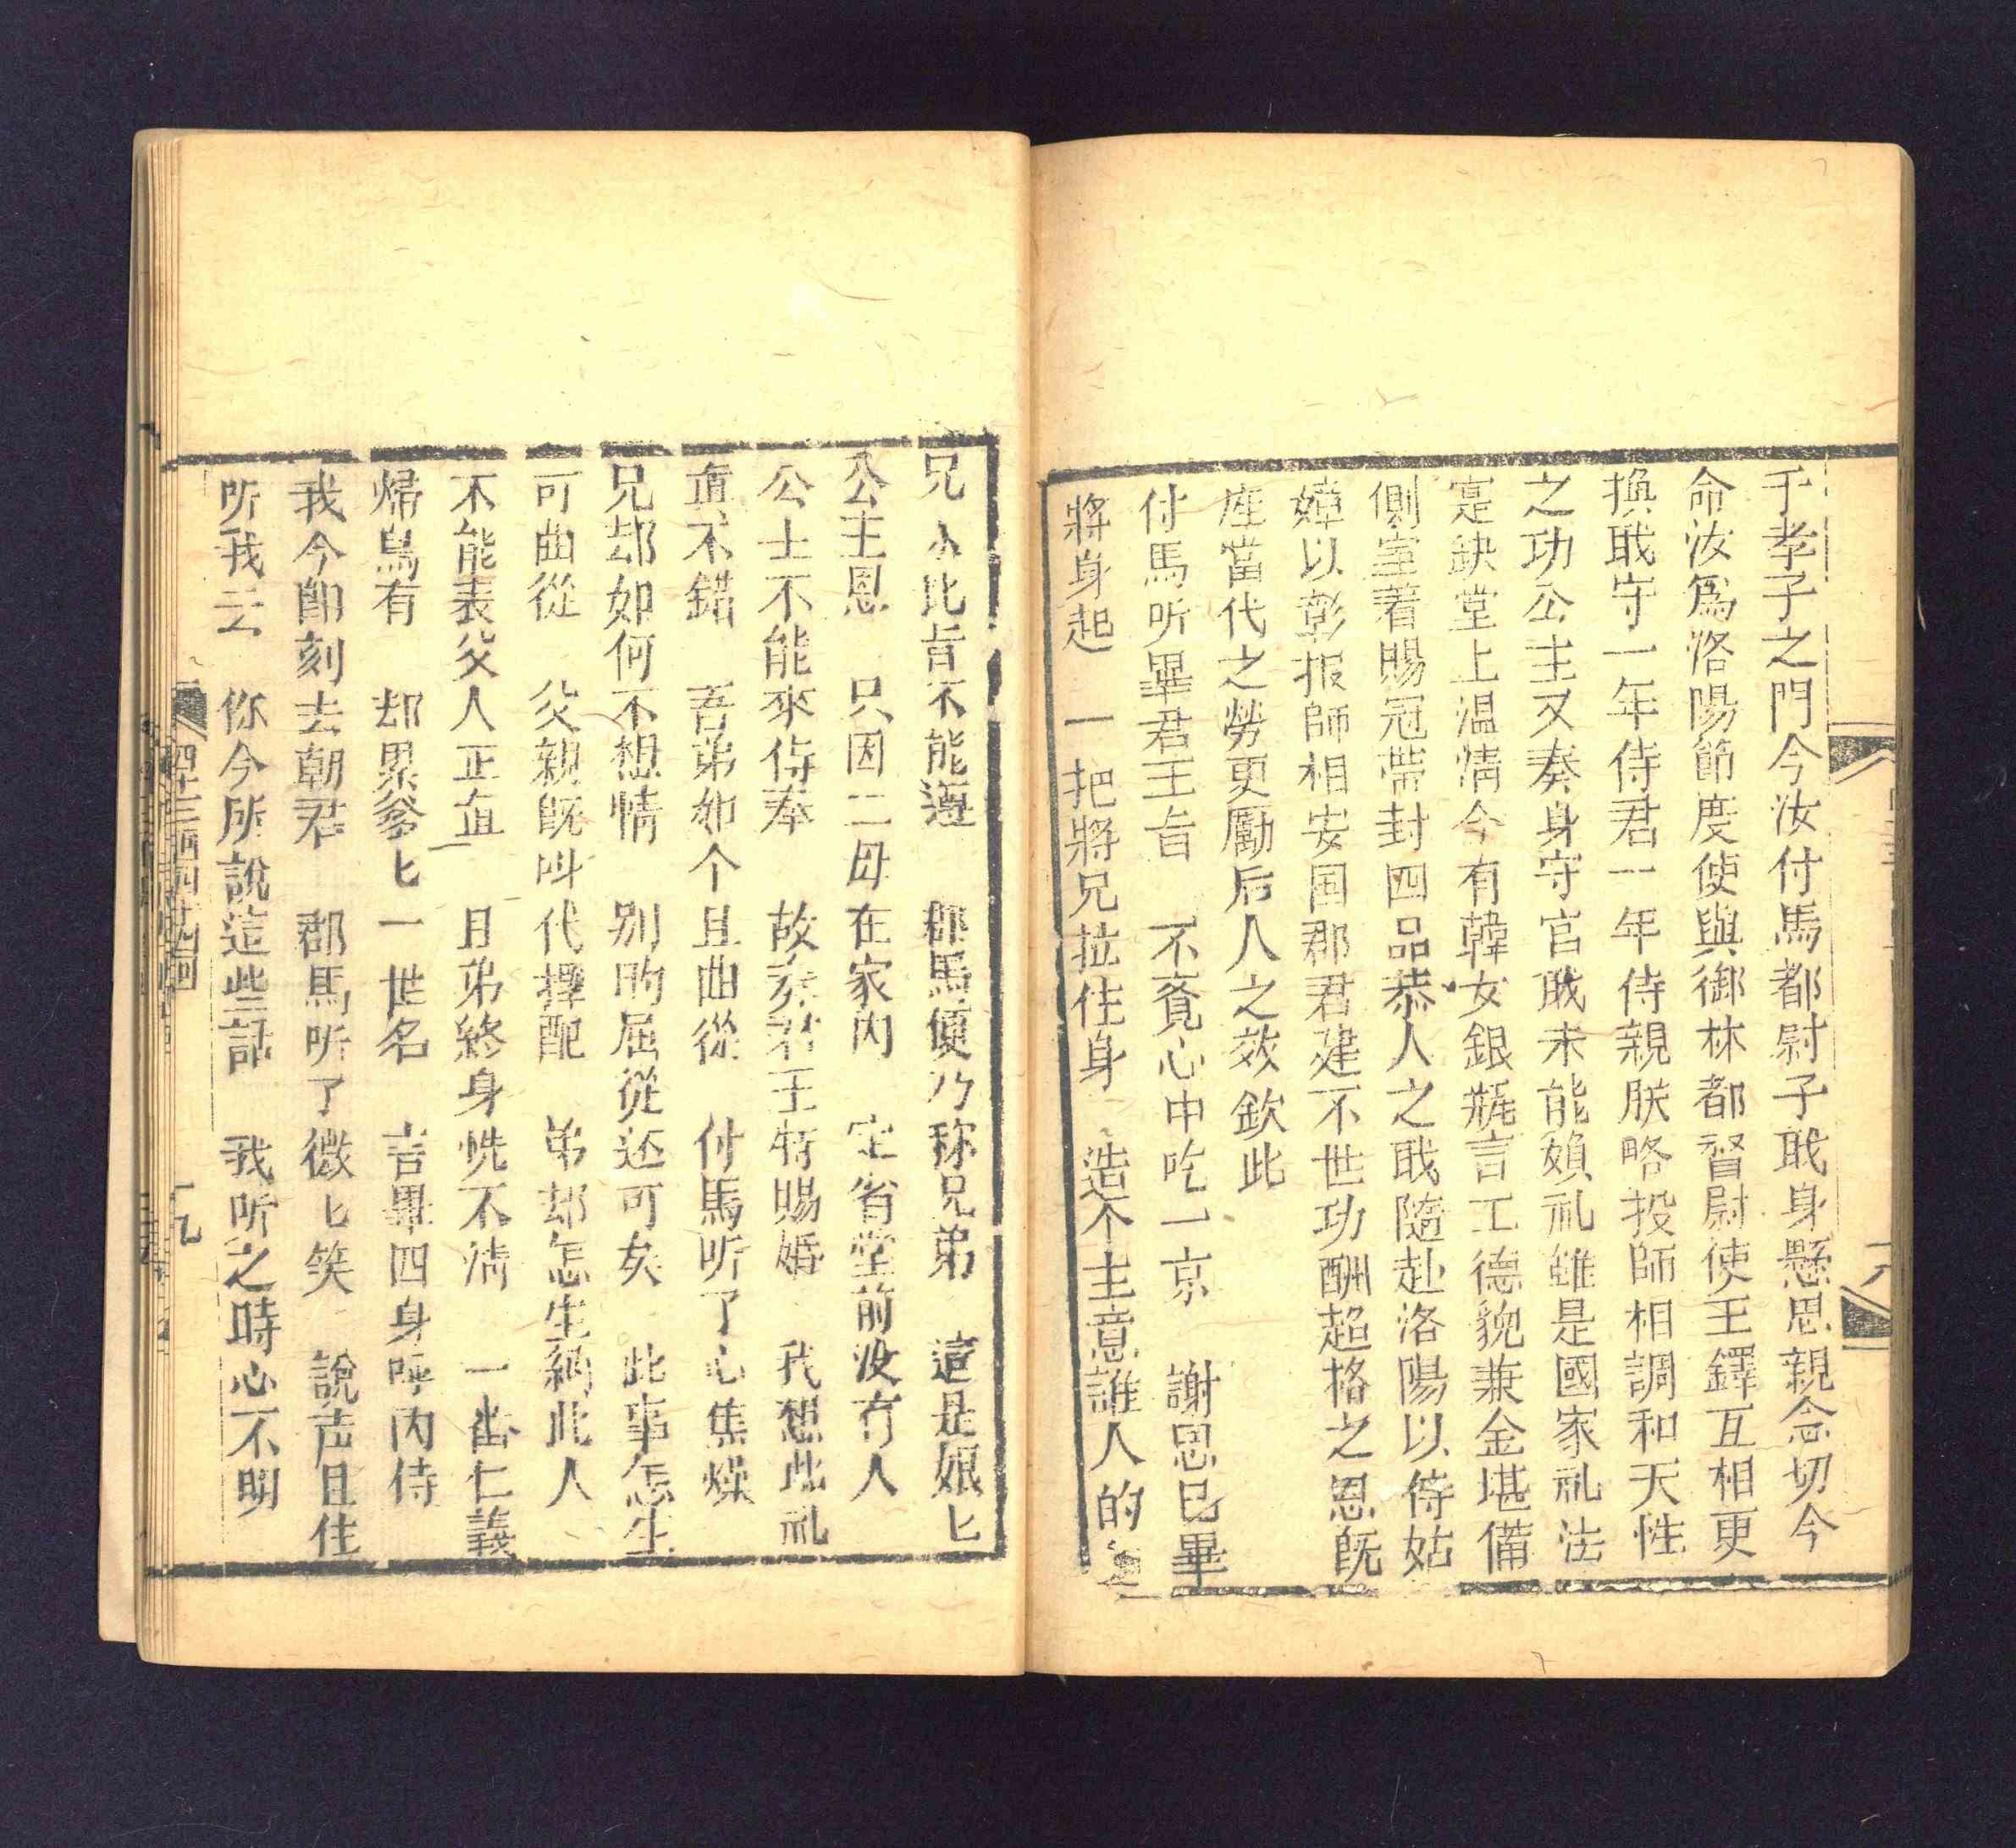 于孝子之門今汝付馬都尉子戢身懸思親念切今
命汝爲洛陽節度使與御林都督尉使王鐸互相更
換戢守一年侍君一年侍親朕略投師相調和天性
之功公主又奏身守官戢未能頻礼雖是國家礼法
寔缺堂上温凊今有韓女銀瓶言工德貌兼金堪備
側室著賜冠帶封四品恭人之戢隨赴洛陽以侍姑
嫜以彰报師相安国郡君建不世功酬超格之恩旣
座當代之勞更勵后人之效欽此
付馬听畢君王旨 不覔心中吃一京 謝恩已畢
將身起 一把將兄拉住身 造个主意誰人的
六
兄 此旨不能遵 郡馬便乃称兄弟 這是娘匕
公主恩 只因二母在家内 定省堂前沒有人
公主不能來侍奉 故奏君王特賜婚 我想此礼
直不錯 吾弟如个且曲從 付馬听了心焦燥
兄却如何不想情 别的屈從还可矣 此事怎生
可曲從 父親旣叫代擇配 弟却怎生納此人
不能表父人正直 且弟終身恍不清 一番仁義
帰烏有 却累爹匕一世名 言畢四身呼内侍
我今卽刻去朝君 郡馬听了微匕笑 說声且住
听我云 你今所說這些話 我听之時心不明
四十三 四十四回
九